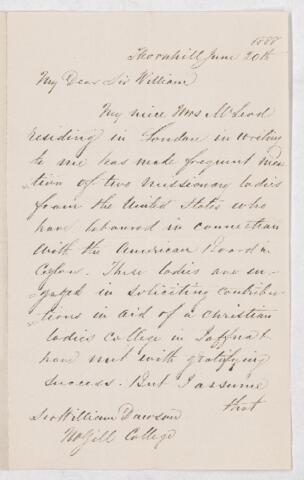 1888
Thornhill June 20th
My Dear Sir William
My niece Mrs McLeod
residing in London in writing
to me has made frequent men
tion of two missionary ladies
from the United States who
have laboured in connection
with the American Board in
Ceylon. These ladies are en-
gaged in soliciting contribu
tions in aid of a christian
ladies college in Jaffna &
have met with gratifying
success. But I assume
that
Sir William Dawson
McGill College